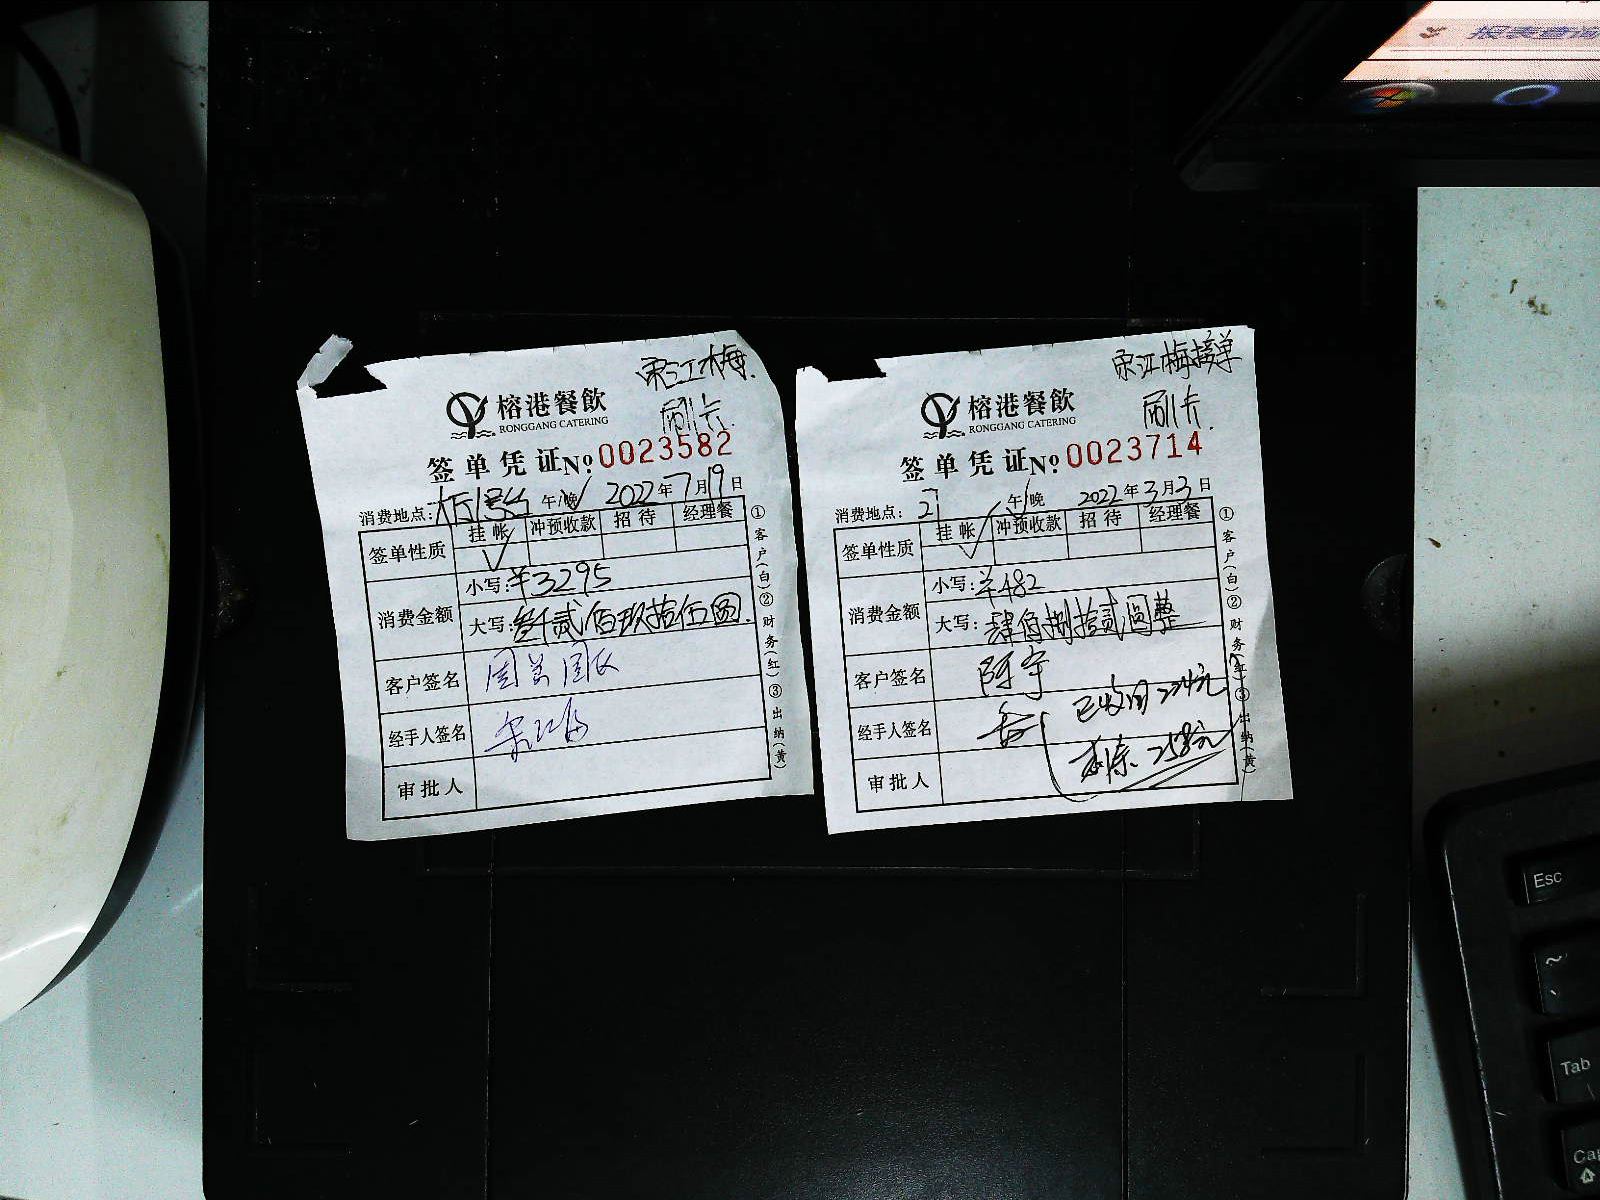 报表查询
宋江梅.
刷卡.
榕港餐飲
RONGGANG CATERING
签单凭证 Nº 0023582
消费地点: 午 晚 2022年7月19日
签单性质 挂帐 冲预收款 招待 经理餐
消费金额 小写:¥3295
大写:叁仟贰佰玖拾伍圆.
客户签名
经手人签名 宋江梅
审批人
①客户(白)②财务(红)③出纳(黄)
宋江梅接单
刷卡.
榕港餐飲
RONGGANG CATERING
签单凭证 Nº 0023714
消费地点: 午 晚 2022年3月3日
签单性质 挂帐 冲预收款 招待 经理餐
消费金额 小写:¥482
大写:肆佰捌拾贰圆整
客户签名 陈宇
经手人签名
已收回224元
剩余:258元
审批人
①客户(白)②财务(红)③出纳(黄)
Esc
~
Tab